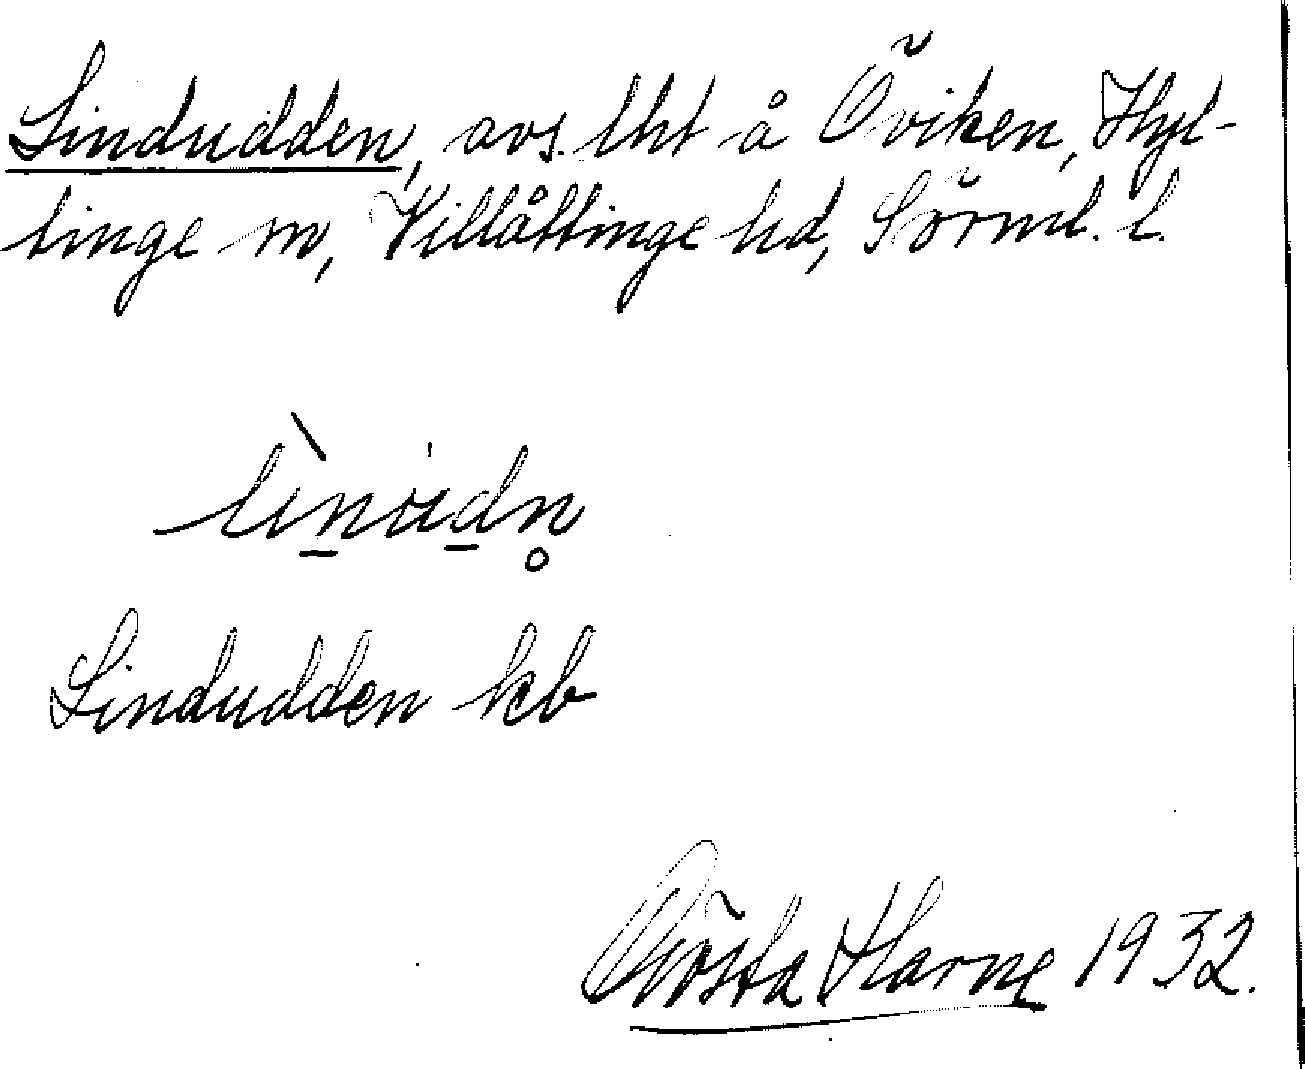 Lindudden, avs. lht å Öviken, Hyl-
tinge sn, Villåttinge hd, Sörml. l.
Lindudden kb
Gösta Harne 1932.